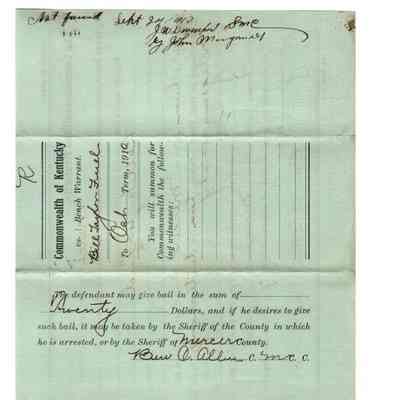 Not found Sept 24 1912
J W Davenport SMC
By John
Commonwealth of Kentucky
vs. } Bench Warrant.
Bill Taylor
To Oct. Term, 1912
You will summon for
Commonwealth the follow-
ing witnesses:
The defendant may give bail in the sum of
Twenty Dollars, and if he desires to give
such bail, it may be taken by the Sheriff of the County in which
he is arrested, or by the Sheriff of Mercer County.
Ben C. Allin C. M. C. C.